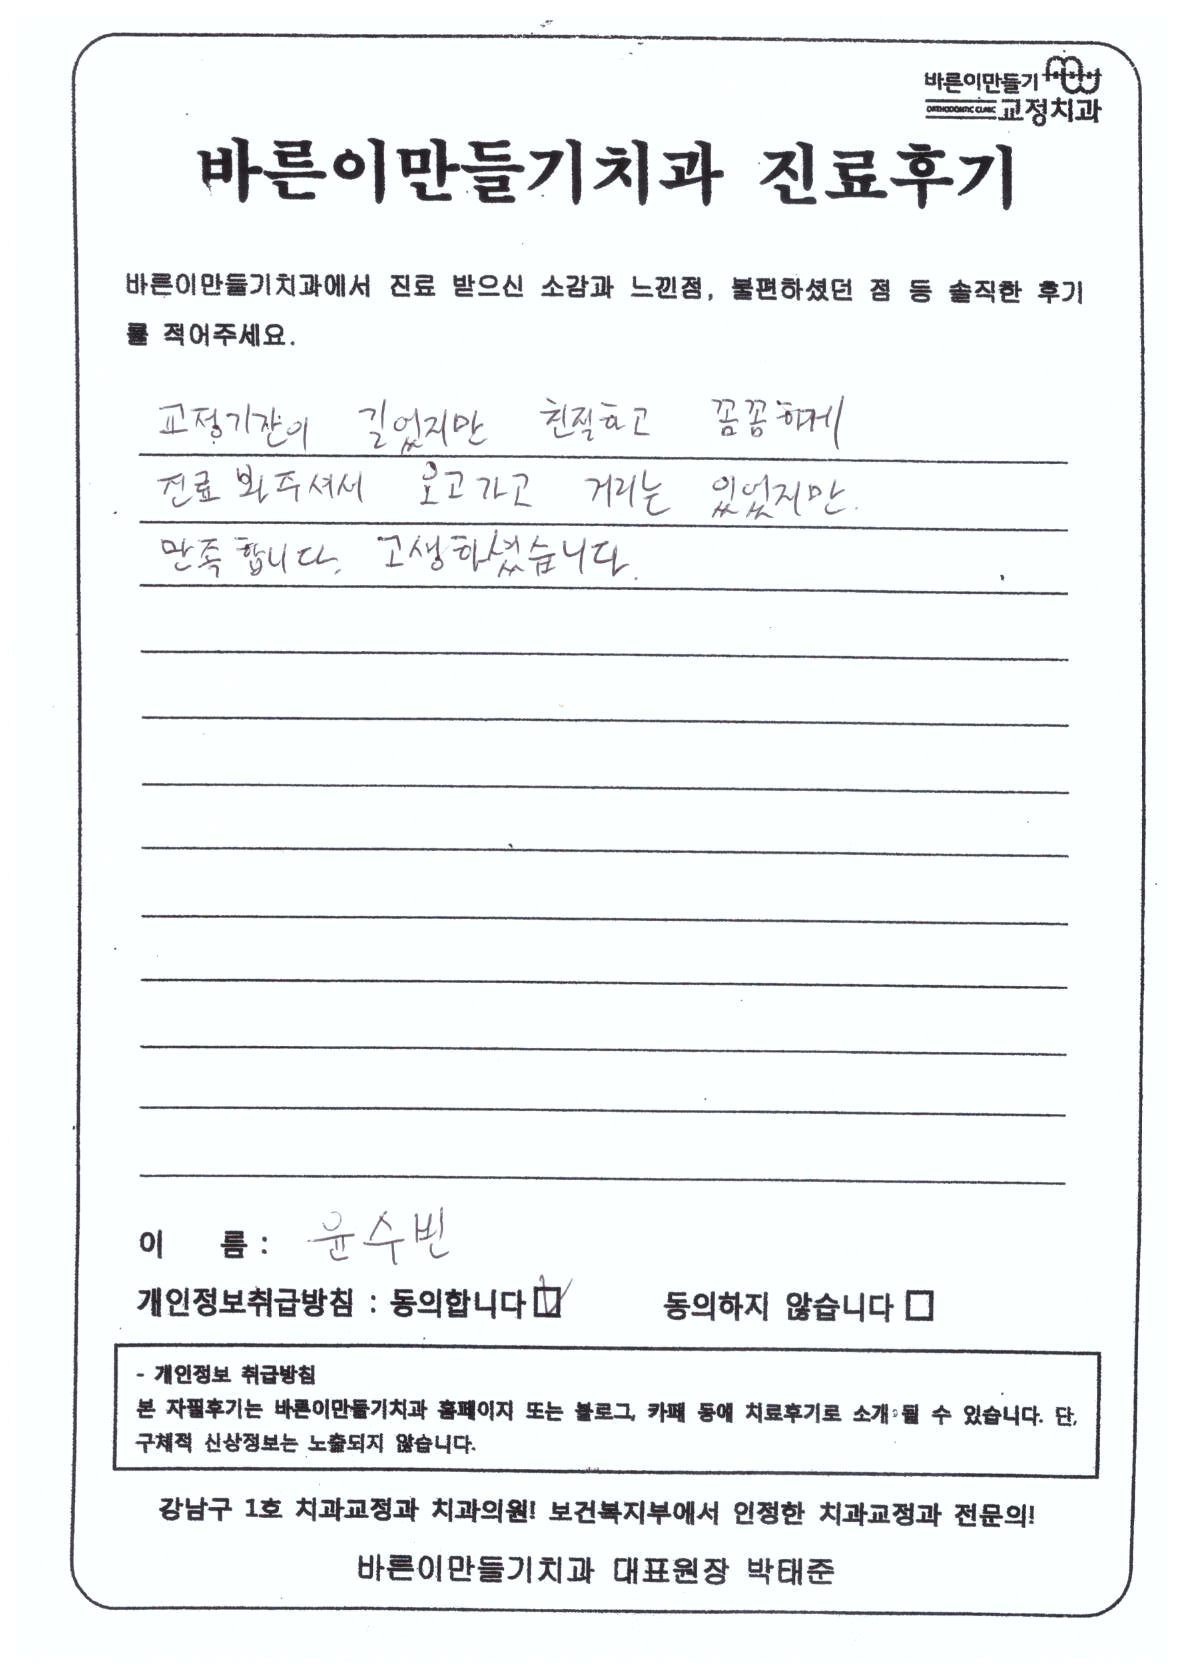 바른이만들기
ORTHODONTIC CLINIC 교정치과
바른이만들기치과 진료후기
바른이만들기치과에서 진료 받으신 소감과 느낀점, 불편하셨던 점 등 솔직한 후기
를 적어주세요.
교정기간이 길었지만 친절하고 꼼꼼하게
진료 봐주셔서 오고가고 거리는 있었지만.
만족합니다. 고생하셨습니다.
이 름 : 윤수빈
개인정보취급방침 : 동의합니다 동의하지 않습니다
- 개인정보 취급방침
본 자필후기는 바른이만들기치과 홈페이지 또는 블로그, 카페 등에 치료후기로 소개 될 수 있습니다. 단,
구체적 신상정보는 노출되지 않습니다.
강남구 1호 치과교정과 치과의원! 보건복지부에서 인정한 치과교정과 전문의!
바른이만들기치과 대표원장 박태준